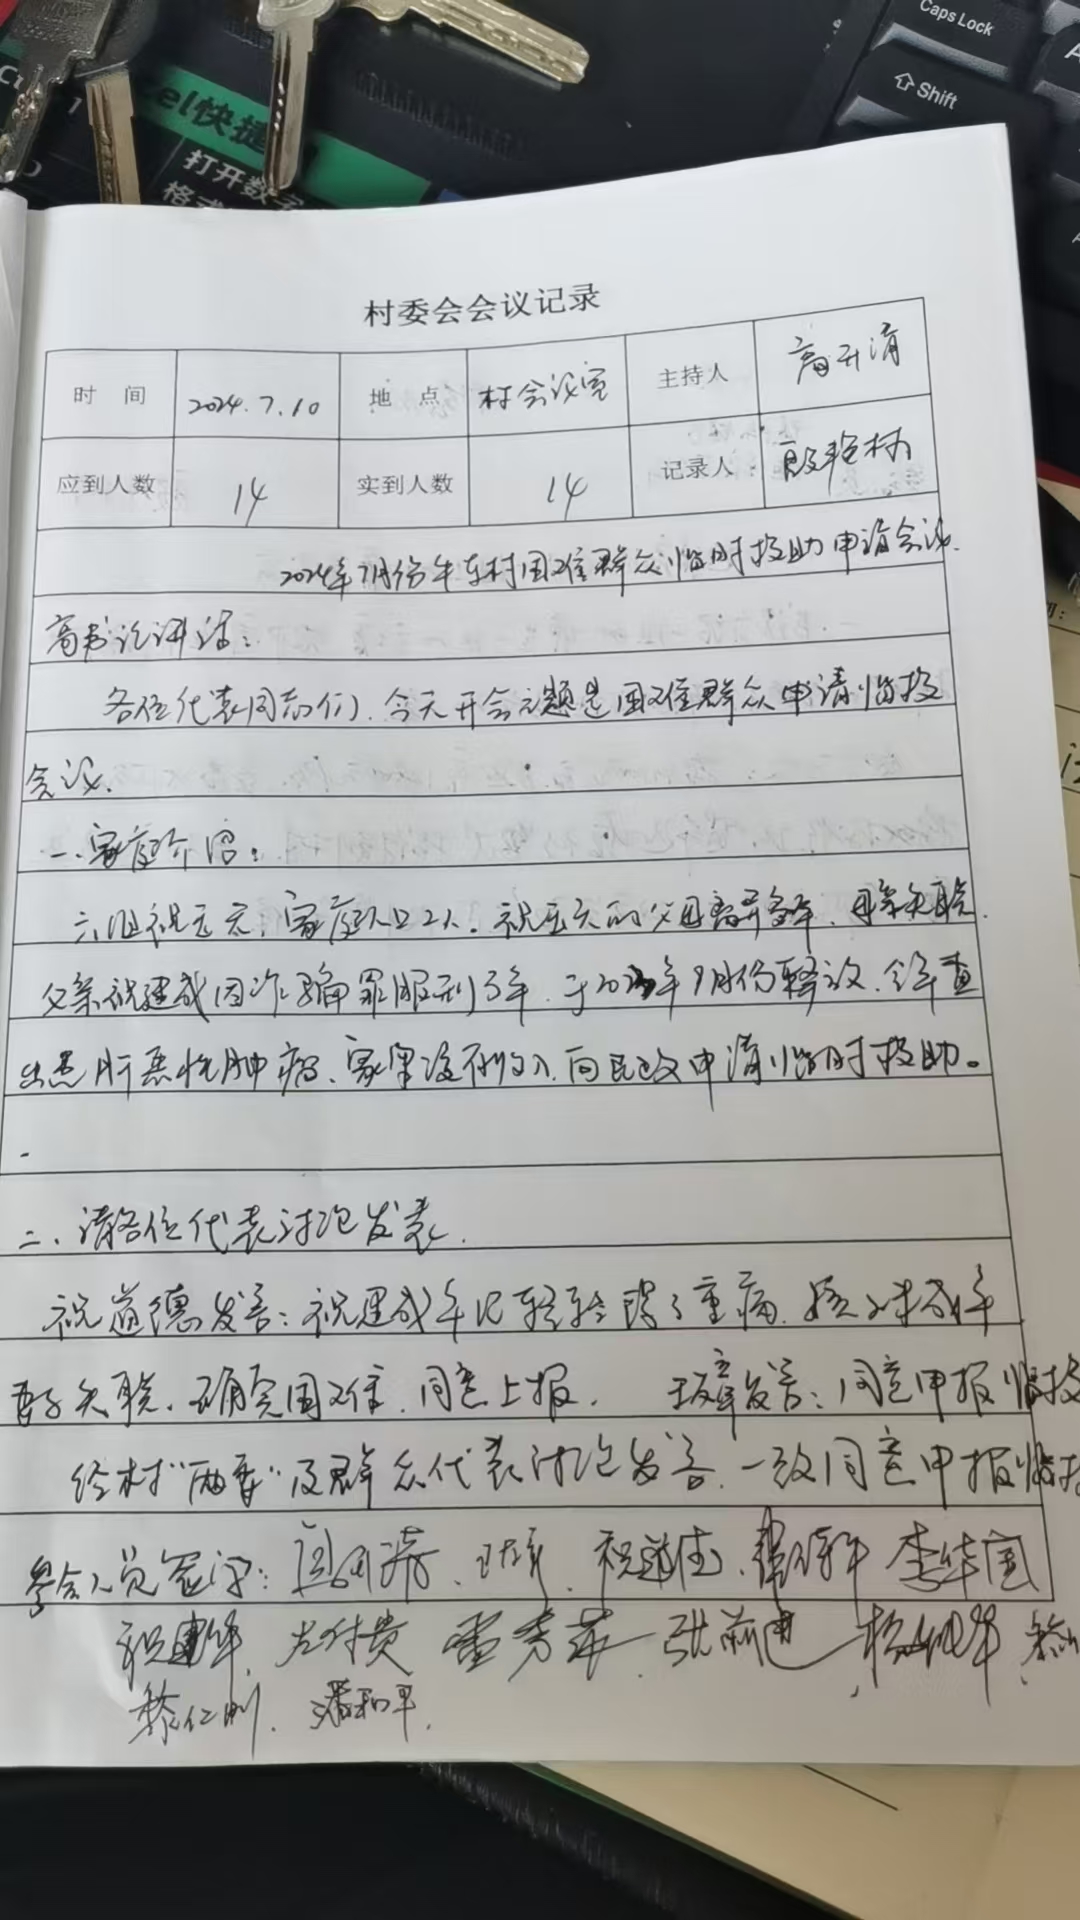 Caps Lock
Shift
el快捷
打开数字
格式
村委会会议记录
时 间 2024.7.10 地 点 村会议室 主持人 高开清
应到人数 14 实到人数 14 记录人
2024年7月份牛车村困难群众临时投助申请会议.
高书记讲话:
各位代表同志们、今天开会主题是困难群众申请临投
会议.
一、家庭介绍:
六组祝玉元,家庭人口2人。祝玉元的父母离异多年,母亲失联.
父亲祝建成因诈骗罪服刑3年.于 年9月份释放.今年查
出患肝恶性肿瘤、家里没有收入,向民政申请临时投助。
二、请各位代表讨论发表.
祝道德发言:祝建成年纪轻轻 了重病. 未成年
妻子失联.确实困难.同意上报. 发言:同意申报临投
经村"两委"及群众代表讨论发言.一致同意申报临投
参会人员签字: 祝道德、 李华国
祝建华 张 潘和平.